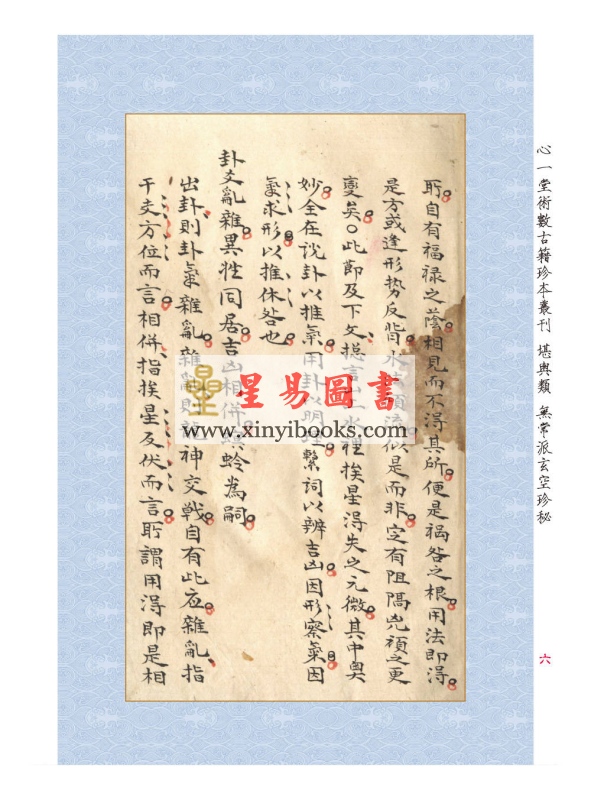 心一堂術數古籍珍本叢刊 堪輿類 無常派玄空珍秘
六
所自有福祿之蔭相見而不得其所便是禍咎之根用法即得
是方或逢形势反背水 似是而非定有阻隔兇禎之更
變矣〇此節及下文摠言山水裡挨星得失之元微其中奧
妙全在說卦以推氣用卦以明理繫詞以辨吉凶因形察氣因
氣求形以推休咎也
卦爻亂雜異姓同居吉凶相併螟蛉為嗣
出卦則卦氣雜亂雜亂則龍神交戰自有此应雜亂指
干支方位而言相併指挨星反伏而言所謂用得即是相
星易圖書
www.xinyibooks.com